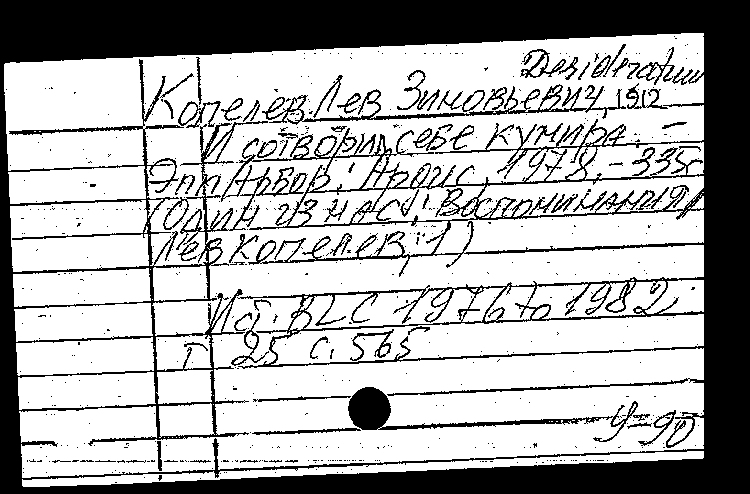 Desideratum
Копелев Лев Зиновьевич, 1912
И сотворил себе кумира. -
Энн Арбор: Ардис, 1978. - 335с
(Один из нас: Воспоминания /
Лев Копелев; 1)
Ист. BLC 1976 to 1982.
т 25 с. 565
У=90